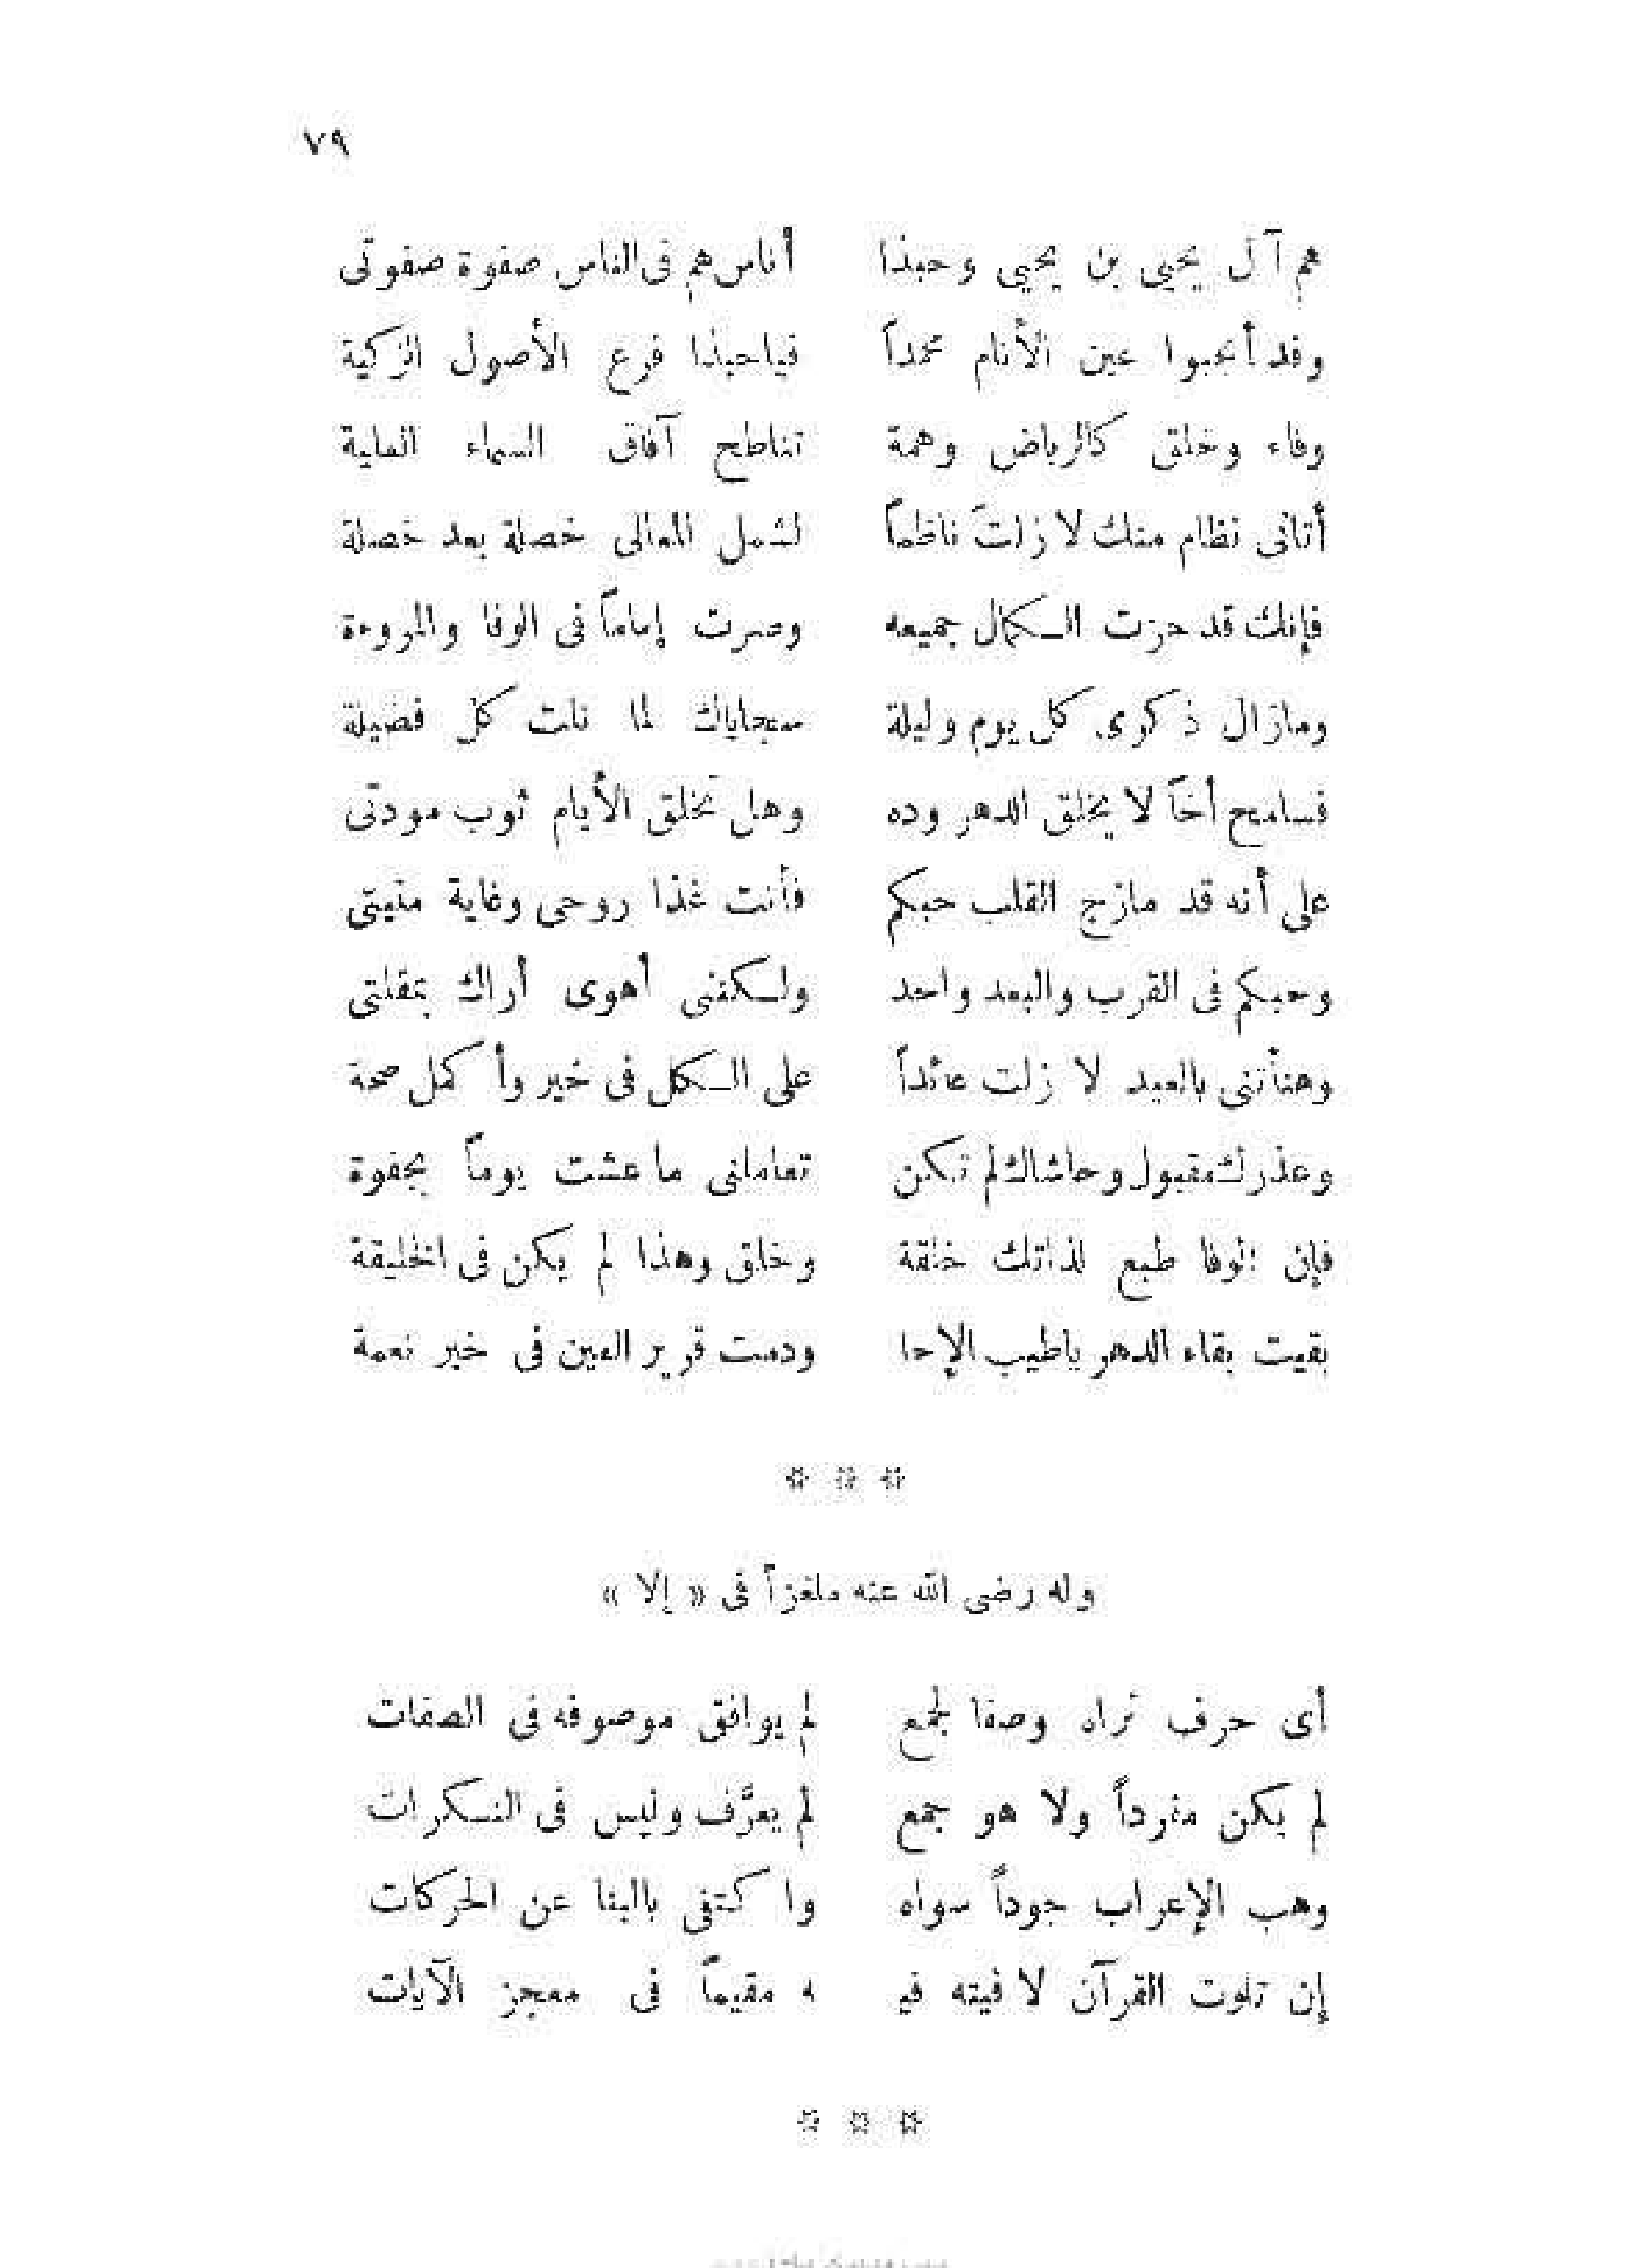 ٧٩
هم آل يحيى بن يحيى وحبذا أناس هم فى الناس صفوة صفوتى
وقد أنجبوا عين الأنام محمداً فياحبذا فرع الأصول الزكية
وفاء وخلق كالرياض وهمة تناطح آفاق السماء العلية
أتانى نظام منك لا زلتَ ناظماً لشمل المعالى خصلة بعد خصلة
فإنك قد حزت الكمال جميعه وصرت إماماً فى الوفا والمروءة
ومازال ذكرى كل يوم وليلة سجاياك لما نلت كل فضيلة
فسامح أخاً لا يخلق الدهر وده وهل تخلق الأيام ثوب مودتى
على أنه قد مازج القلب حبكم فأنت غذا روحى وغاية منيتى
وحبكم فى القرب والبعد واحد ولكننى أهوى أراك بمقلتى
وهنأتنى بالعيد لا زلت عائداً على الكل فى خير وأكمل صحة
وعذرك مقبول وحاشاك لم تكن تعاملنى ما عشت يوماً بجفوة
فإن الوفا طبع لذاتك خلقة وخلق وهذا لم يكن فى الخليقة
بقيت بقاء الدهر ياطيب الإخا ودمت قرير العين فى خير نعمة
* * *
وله رضى الله عنه ملغزاً فى « إلا »
أى حرف تراه وصفا لجمع لم يوافق موصوفه فى الصفات
لم يكن مفرداً ولا هو جمع لم يعرَّف وليس فى النكرات
وهب الإعراب جوداً سواه واكتفى بالبنا عن الحركات
إن تلوت القرآن لا فيته فيـ ـه مقيماً فى معجز الآيات
* * *